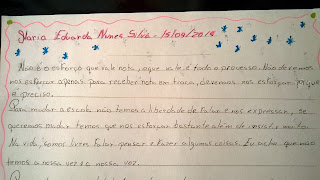 Maria Eduarda Nunes Silva - 15/09/2014
Não é o esforço que vale nota, o que vale é todo o processo. Não devemos
nos esforçar apenas para receber nota em troca, devemos nos esforçar porque
é preciso.
Para mudar a escola não temos a liberdade de falar e nos expressar, se
queremos mudar temos que nos esforçar bastante além de insistir muito.
Na vida, somos livres falar, pensar e fazer algumas coisas. Eu acho que não
temos a nossa vez e a nossa voz.